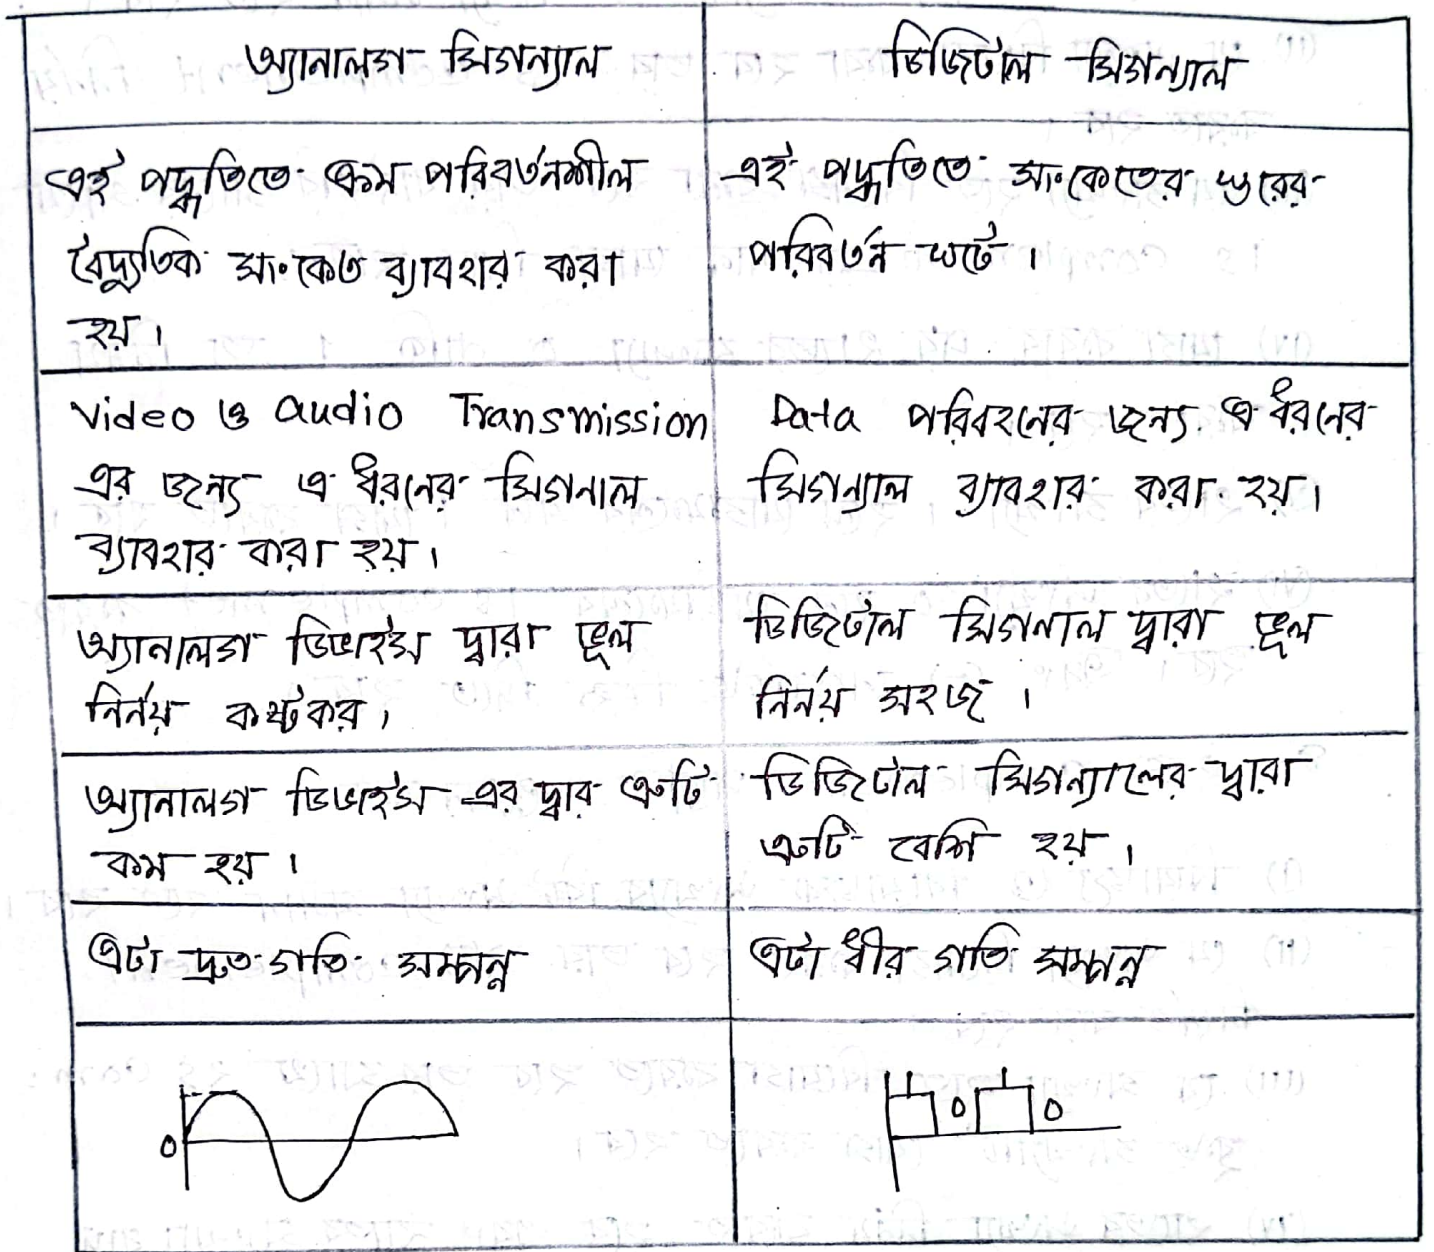 অ্যানালগ সিগন্যাল
ডিজিটাল সিগন্যাল
এই পদ্ধতিতে ক্রম পরিবর্তনশীল
বৈদ্যুতিক সংকেত ব্যাবহার করা
হয়।
এই পদ্ধতিতে সংকেতের স্তরের
পরিবর্তন ঘটে।
Video ও audio Transmission
এর জন্য এ ধরনের সিগনাল
ব্যাবহার করা হয়।
Data পরিবহনের জন্য এ ধরনের
সিগন্যাল ব্যাবহার করা হয়।
অ্যানালগ ডিভাইস দ্বারা ভূল
নির্নয় কষ্টকর।
ডিজিটাল সিগনাল দ্বারা ভূল
নির্নয় সহজ।
অ্যানালগ ডিভাইস এর দ্বার ত্রুটি
কম হয়।
ডিজিটাল সিগন্যালের দ্বারা
ত্রুটি বেশি হয়।
এটা দ্রুত গতি সম্পন্ন
এটা ধীর গতি সম্পন্ন
0
0 0